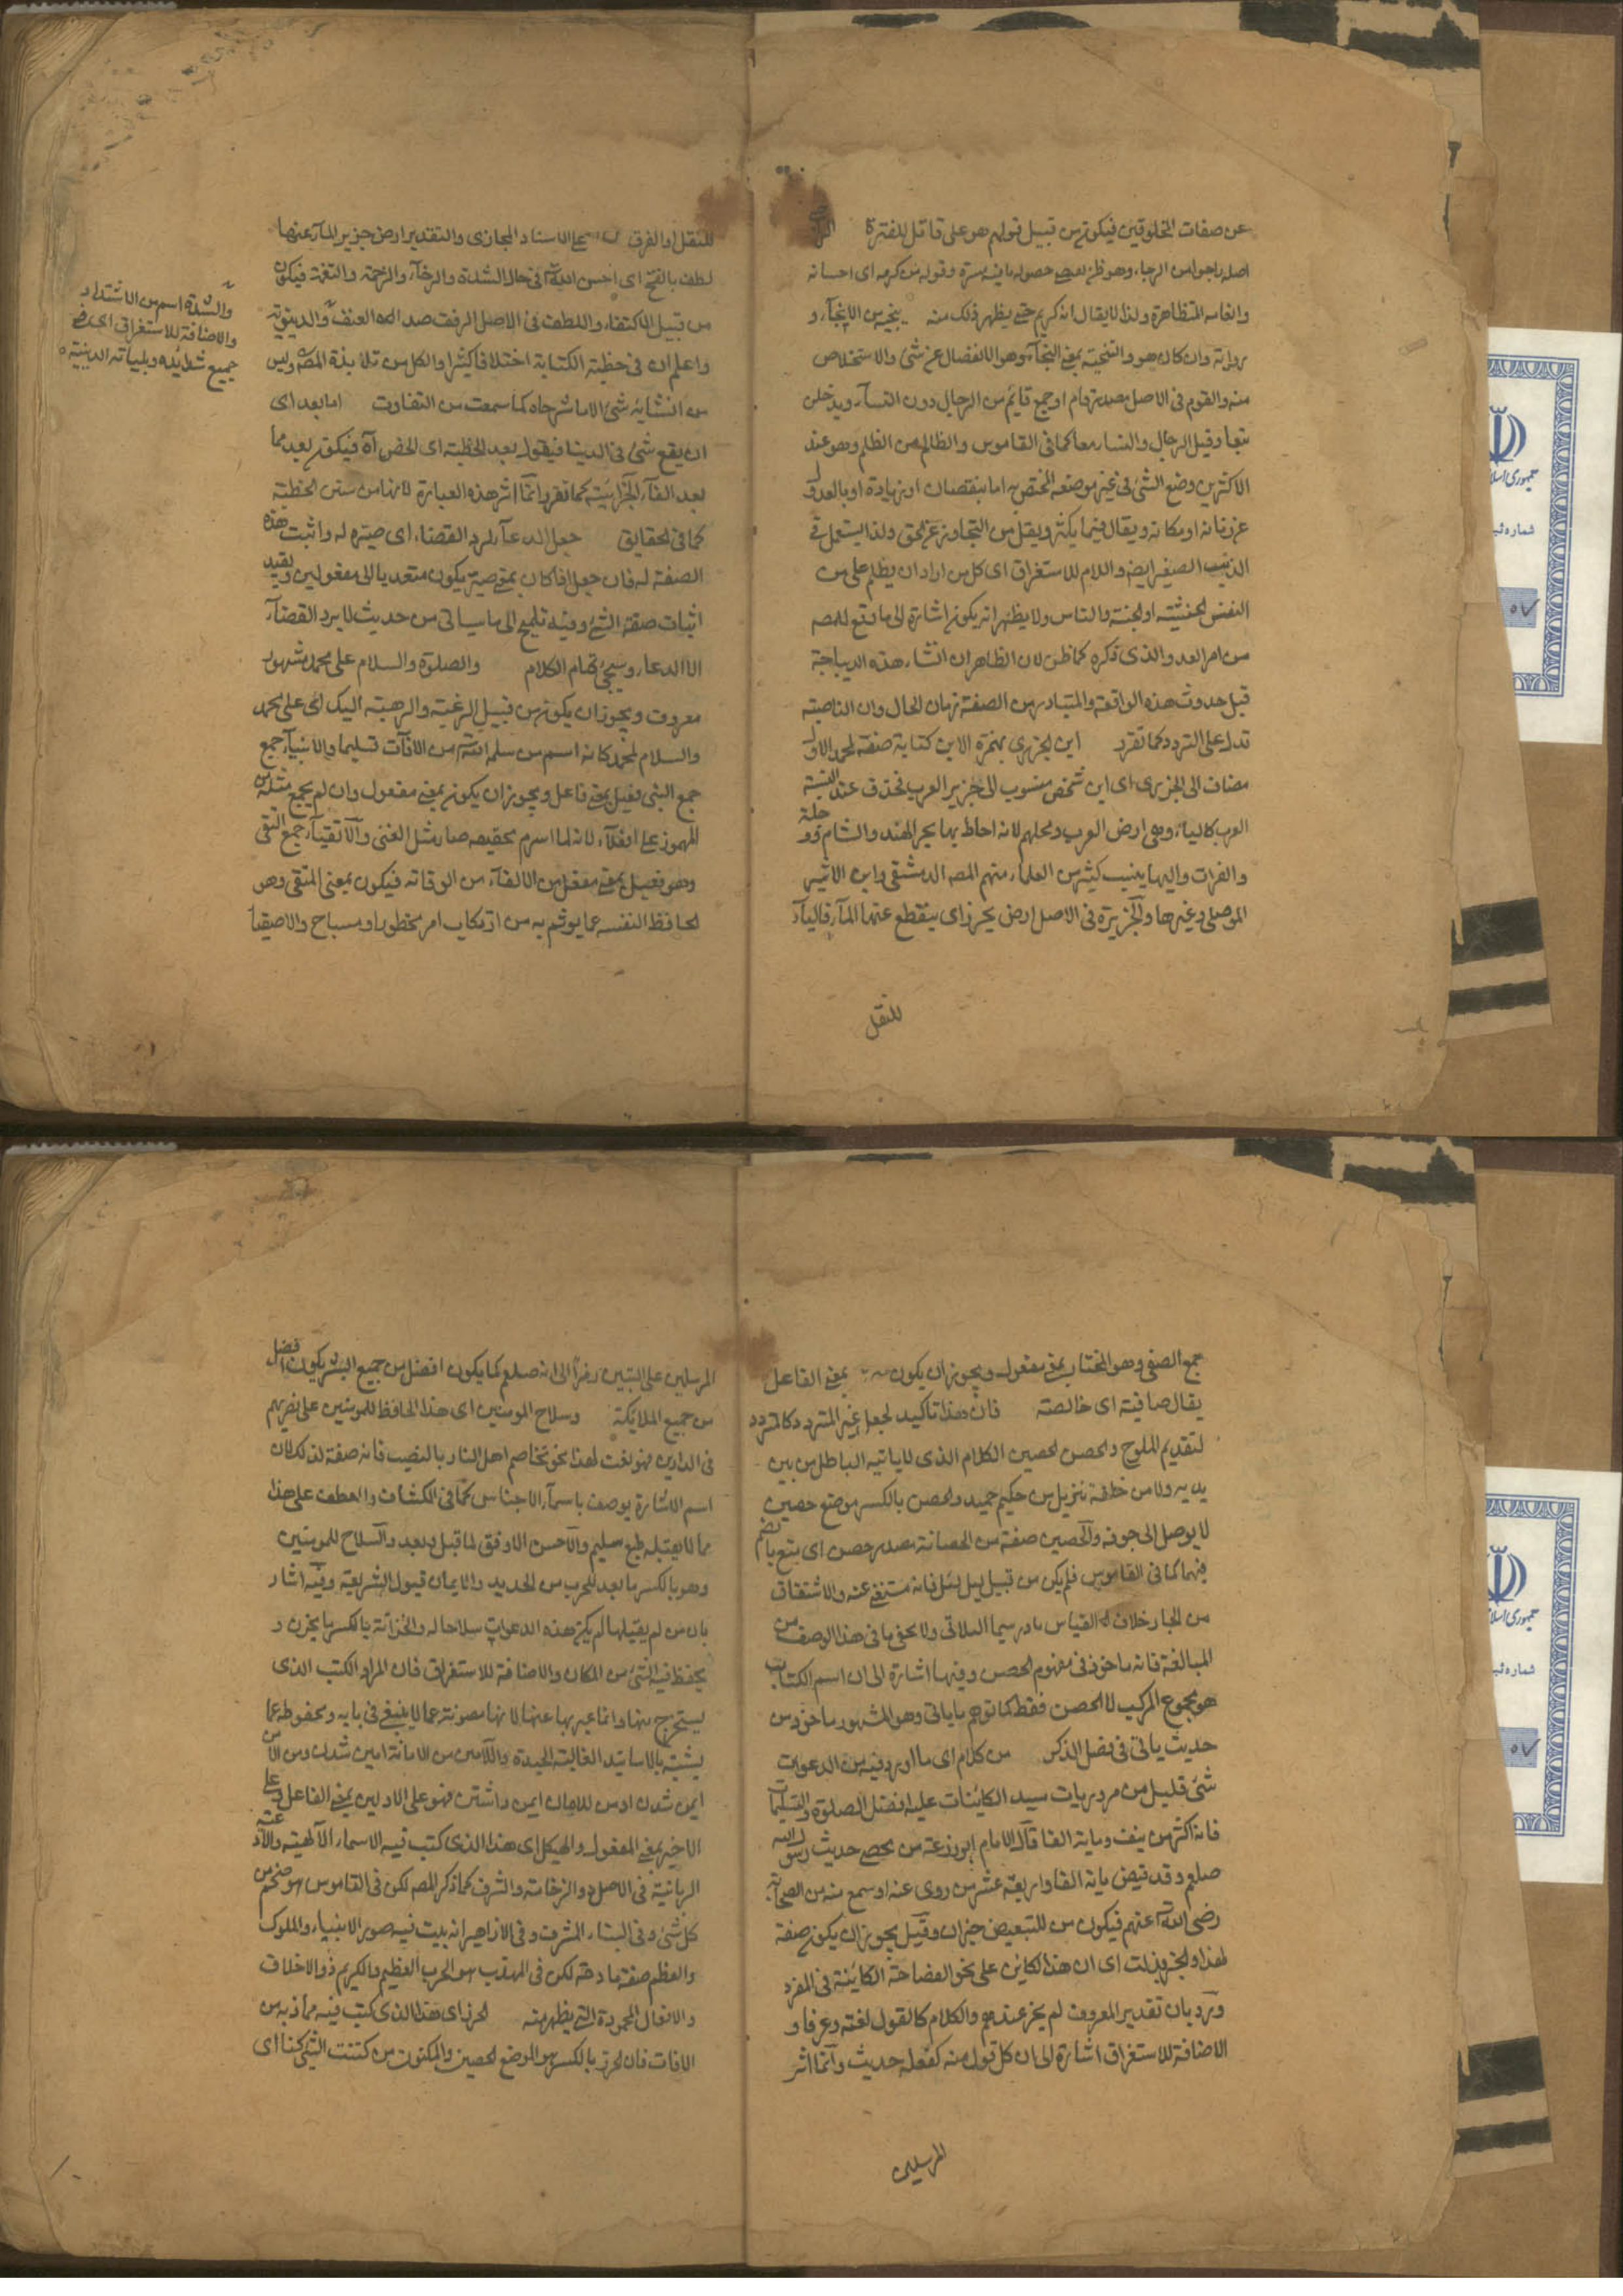 عن صفات المخلوقين فيكون من قبيل قولهم هو على قاتل للفترة
اصله ياجو من الرجاء وهو ظن يقتضي حصول ما فيه مسرة وقوله من كرمه اى احسانه
وانعامه المتظاهرة ولذا لا يقال انه كريم حتى يظهر ذلك منه ينجيه من الانجاء و
بروايته وان كان هو والتنجية بمعنى النجاة وهو الانفصال عن شئ والاستخلاص
منه والقوم فى الاصل مصدر قام او جمع قايم من الرجال دون النساء ويدخلن
تبعا وقيل الرجال والنساء معا كما فى القاموس والظالم من الظلم وهو عند
الاكثرين وضع الشئ فى غير موضعه المختص به اما بنقصان او زيادة او بالعدول
عن زمانه او مكانه ويقال فيما يكثر ويقل من التجاوز عن الحق ولذا يستعمل فى
الذنب الصغير ايضا واللام للاستغراق اى كل من اراد ان يظلم على من
النفس الخبيثة او الجنة والناس ولا يظهر انه يكون اشارة الى ما وقع للمصـ
من امر العدو الذى ذكره كما ظن لان الظاهر ان انشاء هذه الديباجة
قبل حدوث هذه الواقعة والمتبادر من الصفة زمان الحال وان الناصبة
تدل على التردد كما تقرر ابن الجزرى بهمزة الابن كتابة صفة لمحمد الاول
مضاف الى الجزرى اى ابن شخص منسوب الى جزيرة العرب فحذف عند النسبة
العرب كالياء وهى ارض العرب ومحلهم لانه احاط بها بحر الهند والشام ودجلة
والفرات واليها ينسب كثير من العلماء منهم المصـ الدمشقى وابن الاثير
الموصلى وغيرها والجزيرة فى الاصل ارض بحر زاى ينقطع عنها الماء فالياء
للنقل
للنقل او الفرق على الاسناد المجازى والتقدير ارض جزير الماء عنها
لطف بالفتح اى احسن الله فى حال الشدة والرخاء والزحمة والنعمة فيكون
من قبيل الاكتفاء واللطف فى الاصل الرفق ضد العنف والدينوية
واعلم ان فى خطبة الكتابة اختلافا كثيرا والكل من تلامذة المصـ وليس
من انشائه شئ الا ما شرحناه كما سمعت من التفاوت اما بعد اى
ان يقع شئ فى الدنيا فيقول بعد الخطبة اى الحمد آه فيكون بعد مما
بعد الفاء الجزائية كما تقرر وانما اثر هذه العبارة لانها من سنن الخطبة
كما فى الحقايق جعل الدعاء لرد القضاء اى صيره له واثبت هذه
الصفة له فان جعل اذا كان بمعنى صير يكون متعديا الى مفعولين ويفيد
اثبات صفة الشئ وفيه تلميح الى ما سياتى من حديث لا يرد القضاء
الا الدعاء وسيجئ تمام الكلام والصلوة والسلام على محمد مشهور
معروف ويجوز ان يكون من قبيل الرغبة والرهبة اليك اى على محمد
والسلام لمحمد كانه اسم من سلمه الله من الافات تسليما والانبياء جمع
جمع النبى فعيل بمعنى فاعل ويجوز ان يكون بمعنى مفعول وان لم يجمع مثله من
المهموز على افعلاء لانه لما التزم تخفيفه صار مثل الغنى والاتقياء جمع التقى
وهو فعيل بمعنى مفتعل من الاتقاء من الوقاية فيكون بمعنى المتقى وهو
الحافظ لنفسه عما يوثم به من ارتكاب امر محظور او مباح والاصفيا
والشدة اسم من الاشتداد
والاضافة للاستغراق اى فى
جميع شدائده وبلياته الدينية
جمع الصفى وهو المختار بمعنى مفعول ويجوز ان يكون بمعنى الفاعل
يقال صافية اى خالصة فان هذا تاكيد لجعل غير المتردد كالمتردد
لتقديم الملوح والحصن الحصين الكلام الذى لا ياتيه الباطل من بين
يديه ولا من خلفه تنزيل من حكيم حميد والحصن بالكسر موضع حصين
لا يوصل الى جوفه والحصين صفة من الحصانة مصدر حصن اى منع بالضم
فيهما كما فى القاموس فلم يكن من قبيل ليل لئل فانه مستغنى عنه والاشتقاق
من الجار خلاف القياس نادر سيما الثلاثى ولا يخفى ما فى هذا الوصف من
المبالغة فانه ماخوذ فى مفهوم الحصن وفيها اشارة الى ان اسم الكتاب
هو مجموع المركب لا الحصن فقط كما توهم ما ياتى وهو المشهور ماخوذ من
حديث ياتى فى فضل الذكر من كلام اى ما اورد فيه من الدعوات
شئ قليل من مرويات سيد الكاينات عليه افضل الصلوة والتسليمات
فانه اكثر من نيف ومايه الفا قال الامام ابو زرعة من يحصى حديث رسول الله
صلعم وقد قبض عن ماية الف واربعة عشر من روى عنه او سمع منه من الصحابة
رضى الله عنهم فيكون من للتبعيض خبران وقيل يجوز ان يكون صفة
لهذا والخبر بذلت اى ان هذا الكائن على نحو الفصاحة الكاينة فى المفرد
ورد بان تقدير المعروف لم يجز عندهم والكلام كالقول لغة وعرفا و
الاضافة للاستغراق اشارة الى ان كل قول منه كفعله حديث وانما اثر
المرسلين
المرسلين على النبيين رمزا الى انه صلعم كما يكون افضل من جميع البشر يكون افضل
من جميع الملايكة وسلاح المومنين اى هذا الحافظ للمومنين على ضررهم
فى الدارين فهو نعت لهذا نحو تخاصم اهل النار بالنصب فانه صفة لذلك لان
اسم الاشارة يوصف باسماء الاجناس كما فى الكشاف والعطف على هذا
مما لا يقبله طبع سليم والاحسن الاوفق لما قبل وبعد والسلاح للمومنين
وهو بالكسر ما يعد للحرب من الحديد والايمان قبول الشريعة وفيه اشار
بان من لم يقبلها لم يكن هذه الدعوات سلاحا له والخزانة بالكسر ما يخزن و
يحفظ فيه الشئ من المكان والاضافة للاستغراق فان المراد الكتب الذى
يستخرج منها وانما عبر بها عنها لانها مصونة عما لا ينبغى فى بابه ومحفوظة عما
يشينه بالاسانيد الغالبة الجيدة والامين من الامانة امين شدن ومن الامن
ايمن شدن او من للامان ايمن داشتن فهو على الاولين بمعنى الفاعل وعلى
الاخير بمعنى المفعول والهيكل اى هذا الذى كتب فيه الاسماء الالهية والادعية
الربانية فى الاصل والزخانة والشرف كما ذكر المصـ لكن فى القاموس هو ضخم من
كل شئ وفى البناء المشرف وفى الازاهير انه بيت فيه صور الانبياء والملوك
والعظم صفة مادحة لكن فى المهذب هو الحرب العظيم والكريم ذو الاخلاق
والافعال المحمودة التى يظهر منه الحرز اى هذا الذى كتب فيه مما ذب من
الافات فان الحرز بالكسر هو الموضع الحصين والمكنون من كننت الشئ كنا اى